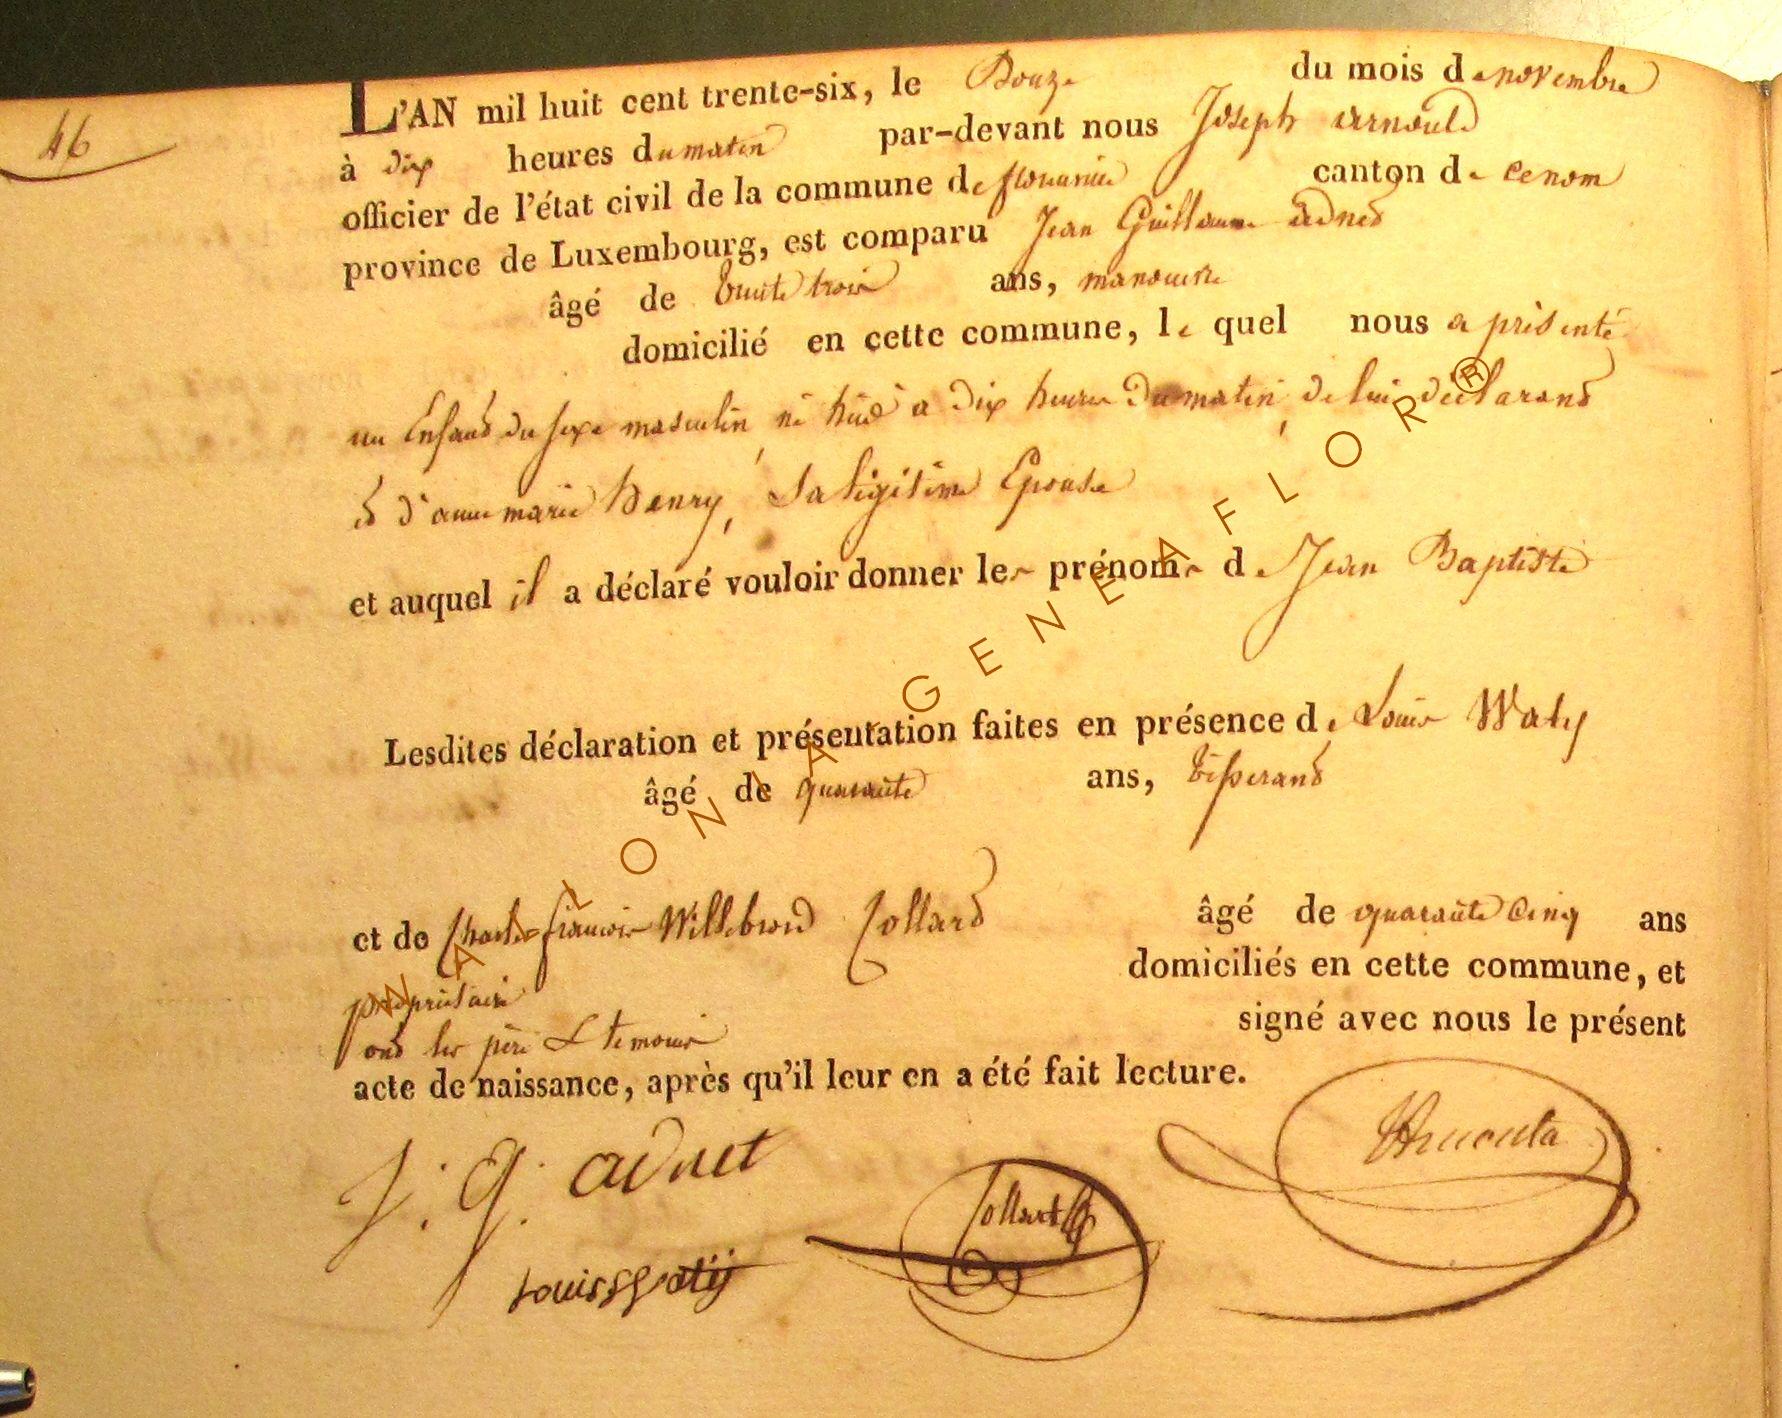 46
L'AN mil huit cent trente-six, le Douze du mois de novembre
à dix heures du matin par-devant nous Joseph arnould
officier de l'état civil de la commune de florenville canton de
province de Luxembourg, est comparu Jean Guillaume adnet
âgé de trente trois ans, manouvre
domicilié en cette commune, le quel nous a présenté
un Enfant du sexe masculin, né hier à dix heures Du matin, de lui déclarant
et d'anne marie Henry, Sa légitime Epouse
et auquel il a déclaré vouloir donner les prénoms de Jean Baptiste
Lesdites déclaration et présentation faites en présence de Louis Waty
âgé de quarante ans, tisserand
et de Charles françois Willebrord Collard âgé de quarante Cinq ans
propriétaire domiciliés en cette commune, et
ont les père & temoins signé avec nous le présent
acte de naissance, après qu'il leur en a été fait lecture.
J. G. adnet
Louis Watij
Collart
WALLONIA GENEAFLOR ®